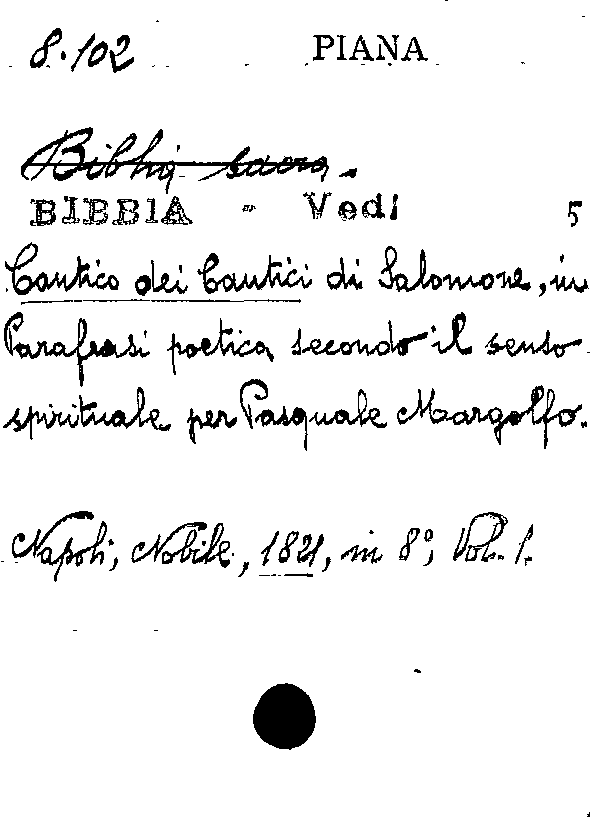 8.102 PIANA
Biblia sacra.
BIBBIA - Vedi 5
Cantico dei Cantici di Salomone, in
Parafrasi poetica secondo il senso
spirituale per Pasquale Margolfo.
Napoli, Nobile, 1821, in 8°, Vol. 1.